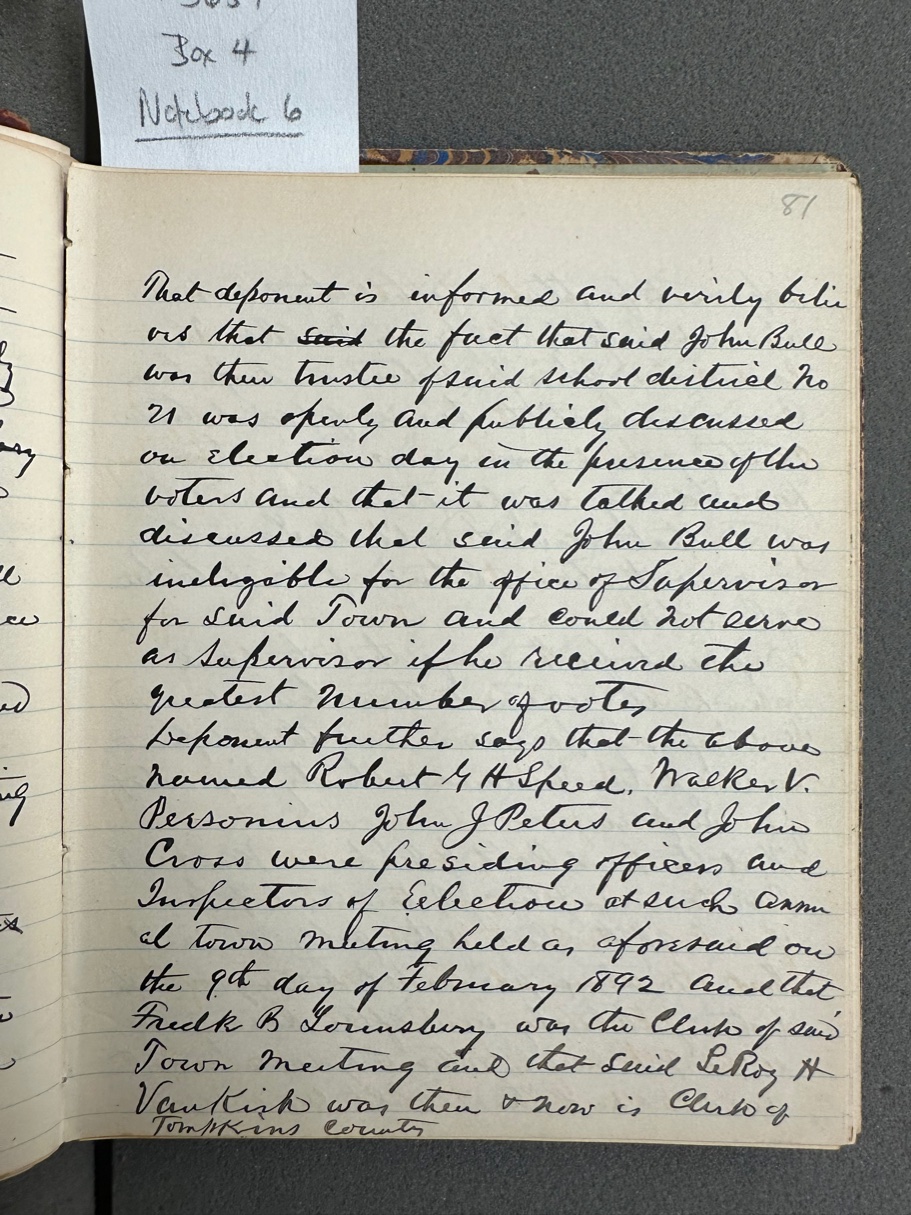 Box 4
Notebook 6
81
That deponent is informed and verily belie
ves that said the fact that said John Bull
was then trustee of said school district No
21 was openly and publicly discussed
on election day in the presence of the
voters and that it was talked and
discussed that said John Bull was
ineligible for the office of Supervisor
for said Town and could not serve
as supervisor if he received the
greatest number of votes
Deponent further says that the above
named Robert G H Speed, Walker V.
Personius John J Peters and John
Cross were presiding officers and
Inspectors of Election at such annu
al town meeting held as aforesaid on
the 9th day of February 1892 and that
Fredk B Lounsbery was the Clerk of said
Town Meeting and that said LeRoy H
VanKirk was then & now is Clerk of
Tompkins County